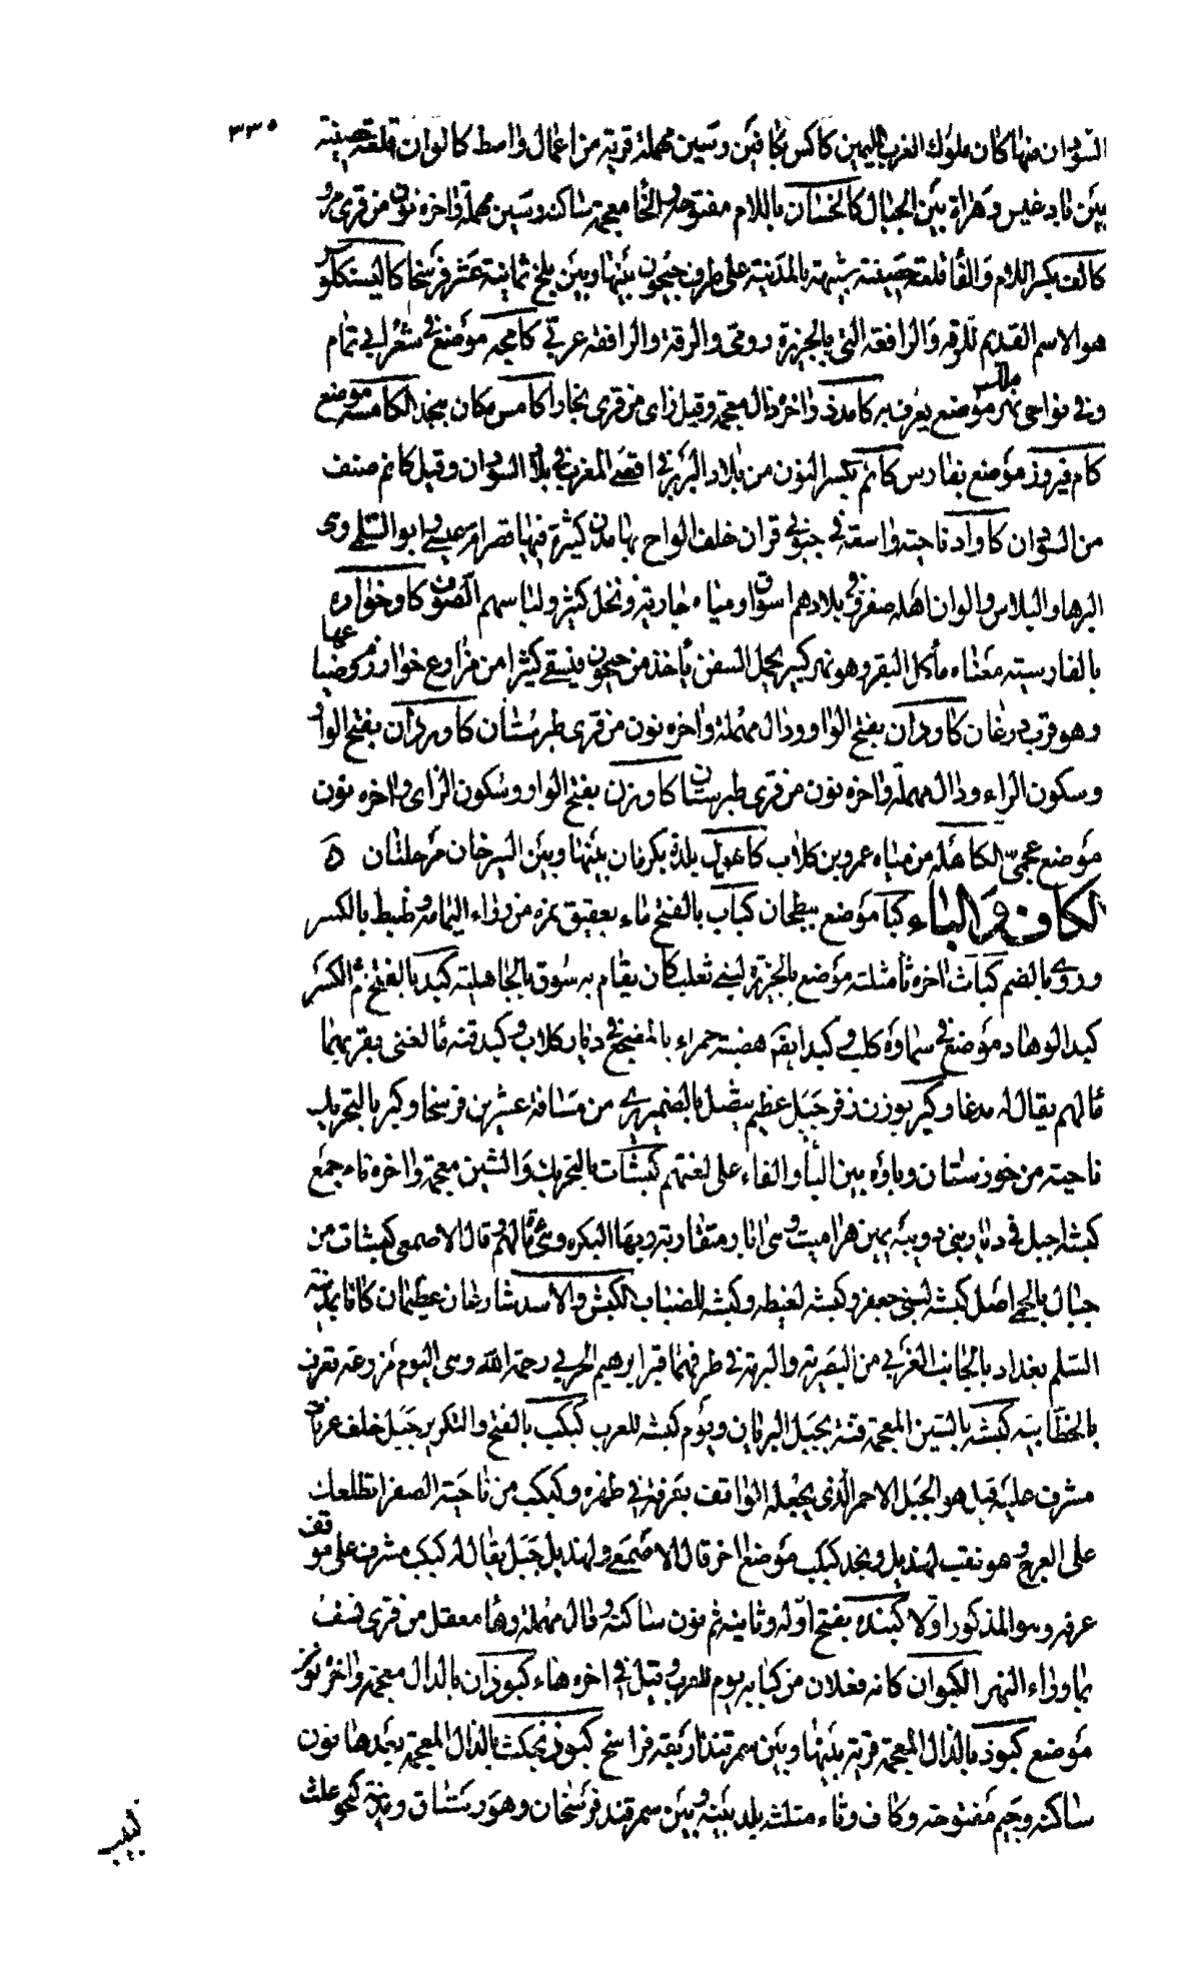 ٣٣٠
السودان منها كان ملوك الغرب الميمين كاكس بكافين وسين مهملة قرية من اعمال واسط كالوان قلعة حصينة
بين بادغيس وهراة بين الجبال كالخسان باللام مفتوحة والخا معجمة ساكنة وسين مهملة واخره نون من قرى مرو
كالف بكسر اللام والفا قلعة حصينة شبيهة بالمدينة على طرف جيجون بينها وبين بلخ ثمانية عشر فرسخا كالينيكوس
هو الاسم القديم للرقه والرافقه التى بالجزيرة رومى والرقة والرافقه عربى كامجر موضع فى شعر ابى تمام
وفى نواحى نهر ملك موضع يعرف به كامدذ واخره ذال معجمه وقيل زاى من قرى بخارا كامس مكان بنجد الكامسه موضع
كام فيروز موضع بفارس كانم بكسر النون من بلاد البربر فى اقصى المغرب فى بلاد السودان وقيل كانم صنف
من السودان كاوار ناحية واسعة فى جنوبى فزان خلف الواح بها مدن كثيرة فيها قصر ام عيسى وابو السلى وى
البرها والبلاس والوان اهله صفر وفى بلادهم اسواق ومياه جارية ونخل كثير ولباسهم الصوف كاوخواره
بالفارسية معناه ماكل البقر وهو نهر كبير يحمل السفن ياخذ من جيجون فيسقى كثيرا من مزارع خوارزم وضياعها
وهو قرب درغان كاودان بفتح الواو ودال مهملة واخره نون من قرى طبرستان كاوردان بفتح الواو
وسكون الراء ودال مهملة واخره نون من قرى طبرستان كاوزن بفتح الواو وسكون الزاى واخره نون
موضع عجمى الكاهلة من مياه عمرو بن كلاب كاهول بلدة بكرمان بينها وبين السيرجان مرحلتان ه
الكاف مع الباء كبا موضع ببطحان كباب بالفتح ماء بعقيق تمره من وراء اليمامة وضبط بالكسر
وروى بالضم كباث اخره ثا مثلثه موضع بالجزيرة لبنى تغلب كان يقام به سوق بالجاهلية كبد بالفتح ثم الكسر
كبد الوهاد موضع فى سماوة كلب وكبد ايضا هضبة حمراء بالمضجع فى ديار كلاب وكبد قنه مالغنى بقربهما
مالهم يقال له مدغا وكير بوزن زفر جبل عظيم يتصل بالضميرى من مسافة عشرين فرسخا وكبر بالتحريك
ناحية من خوزستان وباؤه بين البا والفاء على لغتهم كبشات بالتحريك والشين معجمة واخره تاء جمع
كبشه اجبل فى ديار بنى ذويبه بهن هراميت وهى ابار متقاربة وبها البكره وهى ما لهم وقال الاصمعى كبشات من
جبال بالحمى اصل كبشه لبنى جعفر وكبشه لغيظه وكبشه للضباب الكبش والاسد شارعان عظيمان كانا بمدينة
السلم بغداد بالجانب الغربى من النصرية والبرية فى طرفهما قبر ابرهيم الحربى رحمة الله وهى اليوم مزرعة تعرف
بالخطابية كبشه بالشين المعجمة قنة بجبل الريان ويوم كبشه للعرب كبكب بالفتح والتكرير جبل خلف عرفات
مشرف عليه قيل هو الجبل الاحمر الذى يجعله الواقف بعرفة فى ظهره وكبكب من ناحية الصفرا تطلعك
على العرج وهو نقب لهذيل وبنجد كبكب موضع اخر قال الاصمعى ولهذيل جبل يقال له كبكب مشرف على موقف
عرفه وهو المذكور اولا كبنده بفتح اوله وثانيه ثم نون ساكنة ودال مهملة وها معقل من قرى نسف
بما وراء النهر الكبوان كانه فعلان من كبا به يوم للعرب وقيل فى اخره هاء كبوذان بالذال معجمة واخره نون
موضع كبوذ بالذال المعجمة قرية بينها وبين سمرقند اربعة فراسخ كبوذنجكث بالذال المعجمة بعدها نون
ساكنه وجيم مفتوحه وكاف وثاء مثلثه بلد بينه وبين سمرقند فرسخان وهو رستاق ومدينة لنجوعلث
كبيب